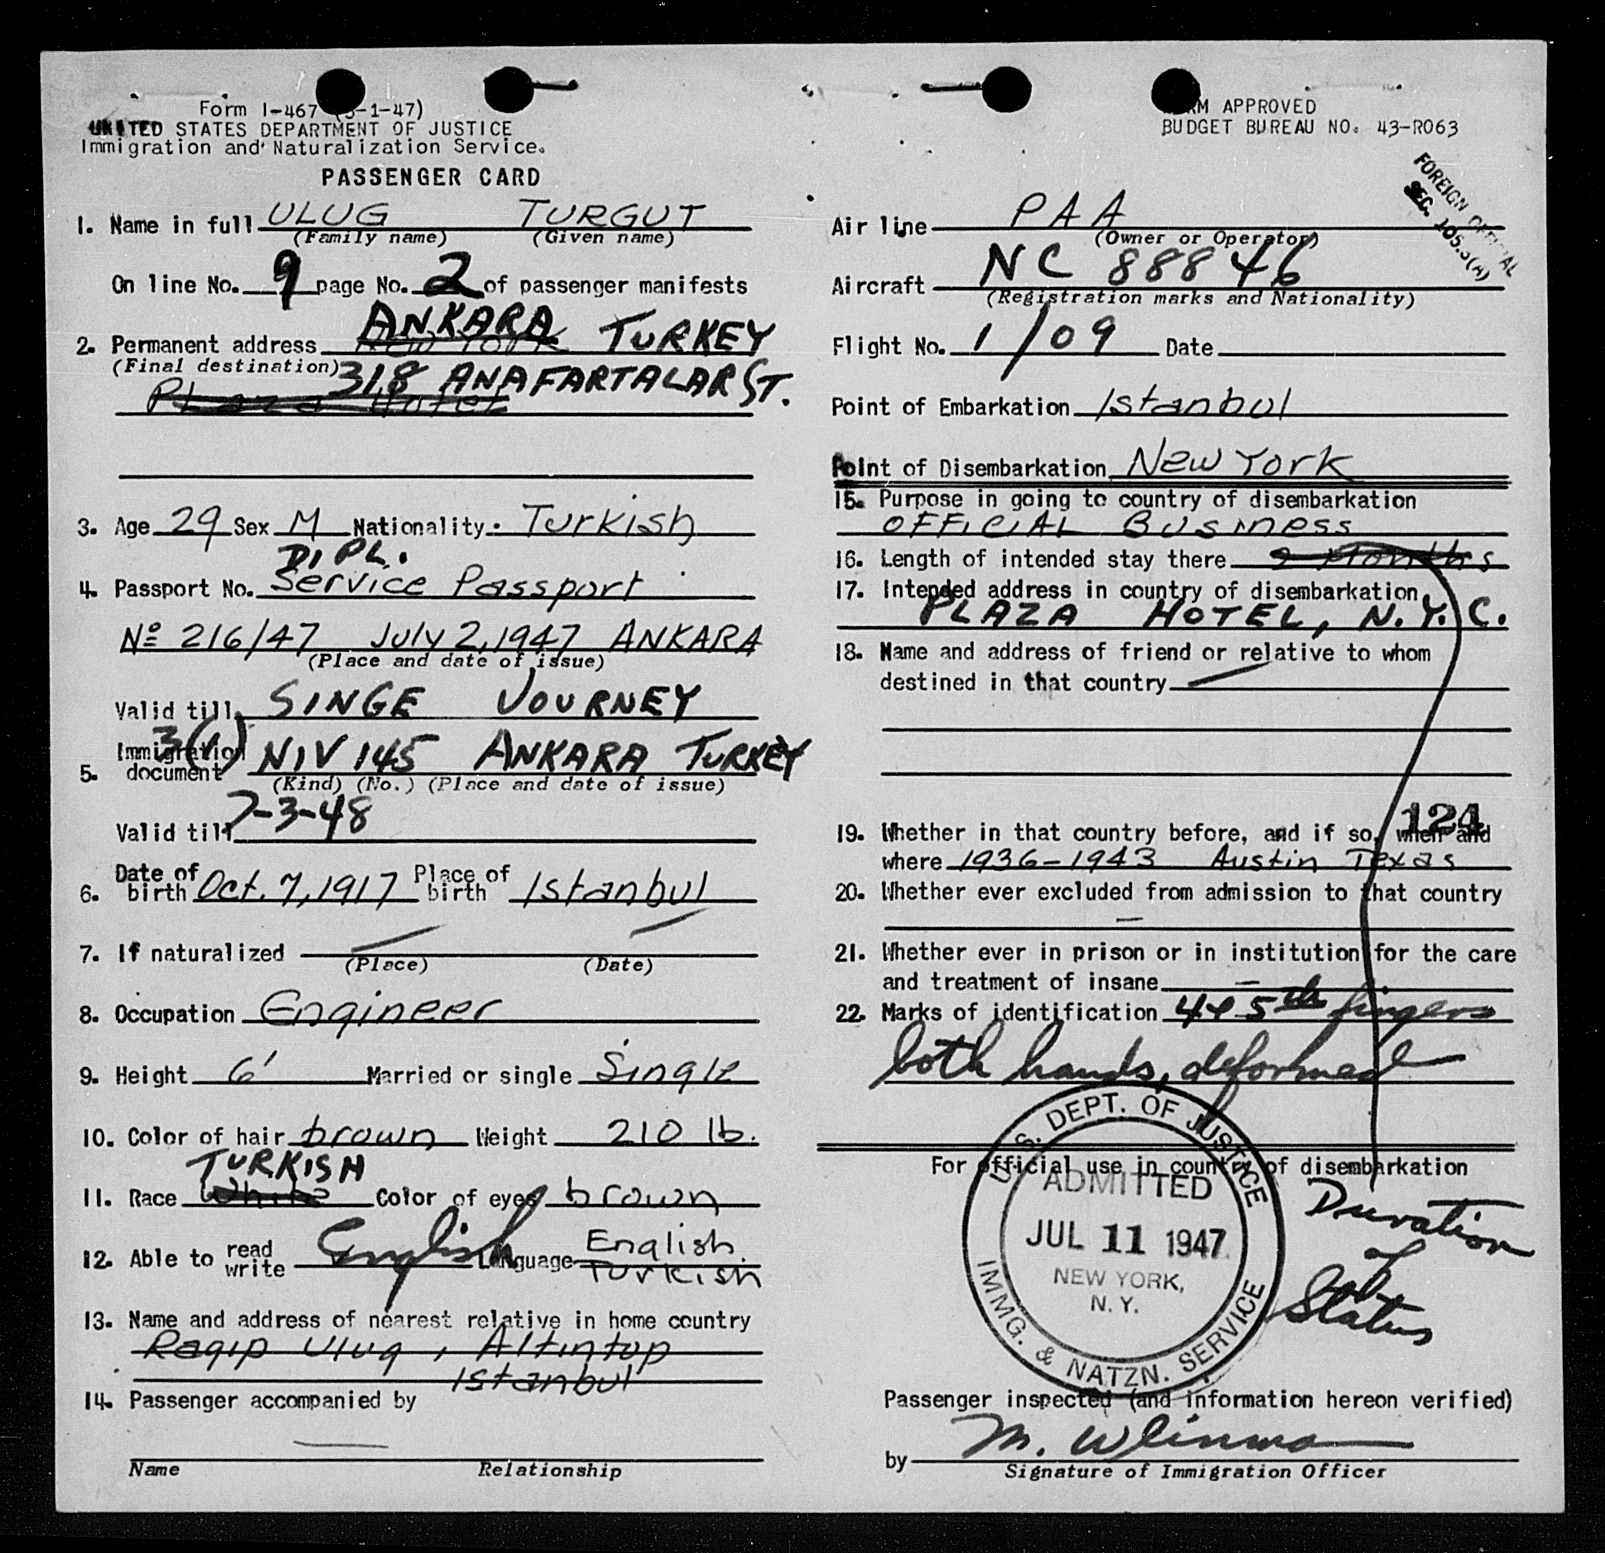 Form I-467 (5-1-47)
UNITED STATES DEPARTMENT OF JUSTICE
Immigration and Naturalization Service.
PASSENGER CARD
1. Name in full ULUG TURGUT
(Family name) (Given name)
On line No. 9 page No. 2 of passenger manifests
2. Permanent address New York ANKARA TURKEY
(Final destination) 318 ANAFARTALAR ST.
Plaza Hotel
3. Age 29 Sex M Nationality. Turkish
DIPL.
4. Passport No. Service Passport
Nº 216/47 July 2, 1947 ANKARA
(Place and date of issue)
Valid till SINGE JOURNEY
3(1)
5. Immigration document NIV 145 ANKARA TURKEY
(Kind) (No.) (Place and date of issue)
Valid till 7-3-48
6. Date of birth Oct. 7, 1917 Place of birth Istanbul
7. If naturalized
(Place) (Date)
8. Occupation Engineer
9. Height 6' Married or single Single
10. Color of hair brown Weight 210 lb.
TURKISH
11. Race White Color of eyes brown
12. Able to read write English Language English Turkish
13. Name and address of nearest relative in home country
Ragip Ulug, Altintop
Istanbul
14. Passenger accompanied by
Name Relationship
FORM APPROVED
BUDGET BUREAU NO. 43-R063
FOREIGN OFFICIAL
SEC. 105.3(A)
Air line PAA
(Owner or Operator)
Aircraft NC 88846
(Registration marks and Nationality)
Flight No. 1/09 Date
Point of Embarkation Istanbul
Point of Disembarkation New York
15. Purpose in going to country of disembarkation
OFFICIAL Business
16. Length of intended stay there 2 Months
17. Intended address in country of disembarkation
PLAZA HOTEL, N.Y.C.
18. Name and address of friend or relative to whom
destined in that country
124
19. Whether in that country before, and if so, when and
where 1936-1943 Austin Texas
20. Whether ever excluded from admission to that country
21. Whether ever in prison or in institution for the care
and treatment of insane
22. Marks of identification 4 & 5th fingers
both hands, deformed
For official use in country of disembarkation
U. S. DEPT. OF JUSTICE
ADMITTED
JUL 11 1947
NEW YORK,
N. Y.
IMMG. & NATZN. SERVICE
Duration
of
Status
Passenger inspected (and information hereon verified)
by M.
Signature of Immigration Officer